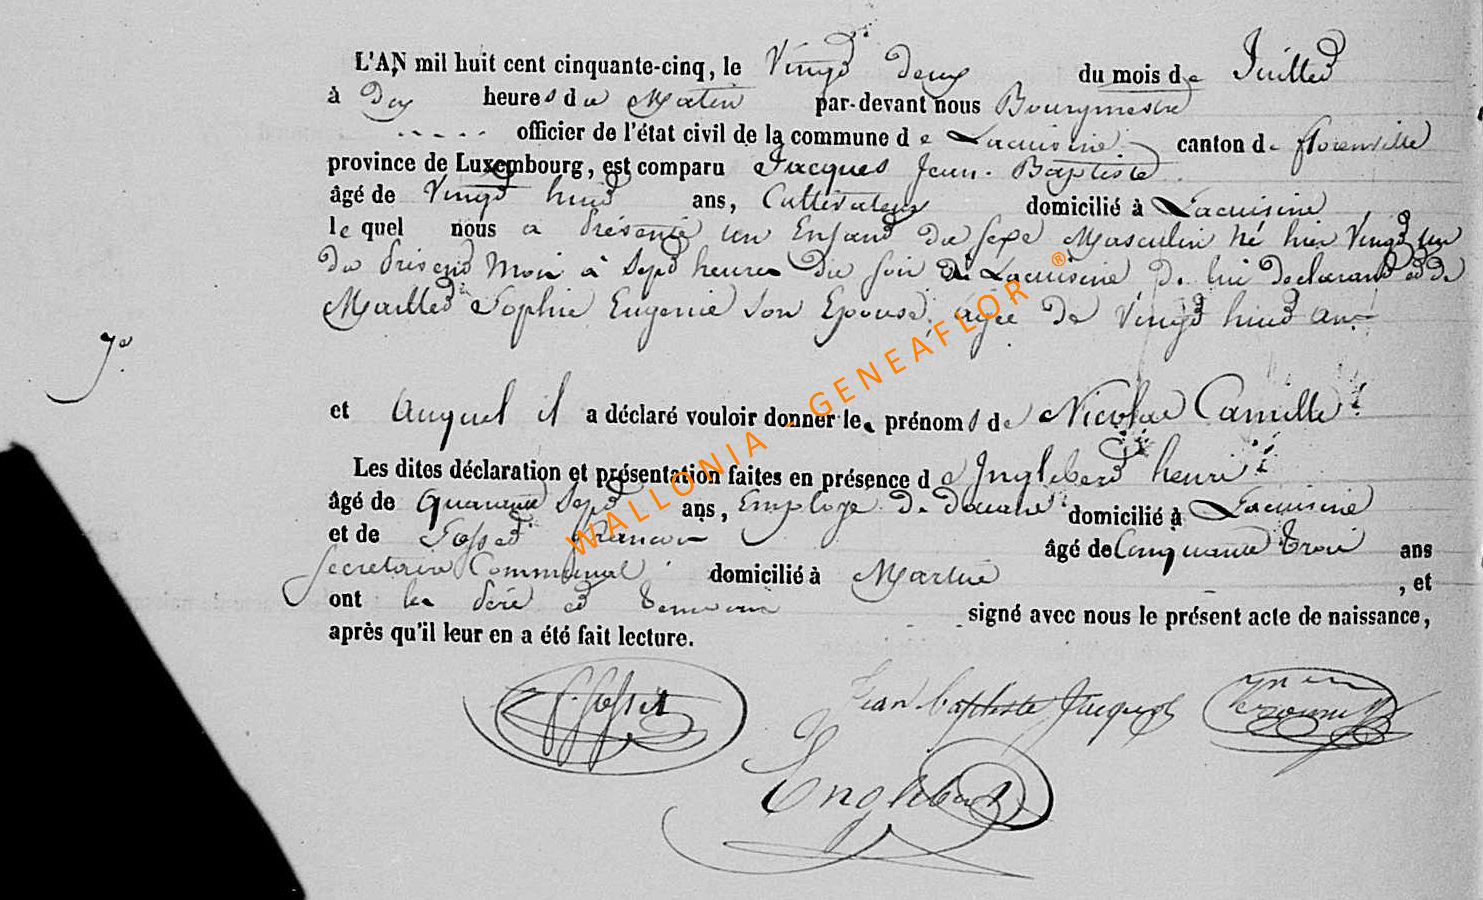 L'AN mil huit cent cinquante-cinq, le Vingt deux du mois de Juillet
à Dix heures du Matin par-devant nous Bourgmestre
officier de l'état civil de la commune de Lacuisine canton de florenville
province de Luxembourg, est comparu Jacques Jean Baptiste
âgé de Vingt huit ans, Cultivateur domicilié à Lacuisine
lequel nous a présenté un Enfant du sexe Masculin né hier Vingt un
du présent Mois à Sept heures du soir à Lacuisine, de lui declarant et de
Maillet Sophie Eugenie son Epouse, agée de Vingt huit ans
7e
et Auquel il a déclaré vouloir donner les prénoms de Nicolas Camille
Les dites déclaration et présentation faites en présence de Inglebert henri
âgé de quarante Sept ans, Employé de douane domicilié à Lacuisine
et de Gosset françois âgé de Cinquante trois ans
Secretaire Communal domicilié à Martué , et
ont les père et temoins signé avec nous le présent acte de naissance,
après qu'il leur en a été fait lecture.
Gosset Jean baptiste Jacques
Englebert
WALLONIA - GENEAFLOR ®